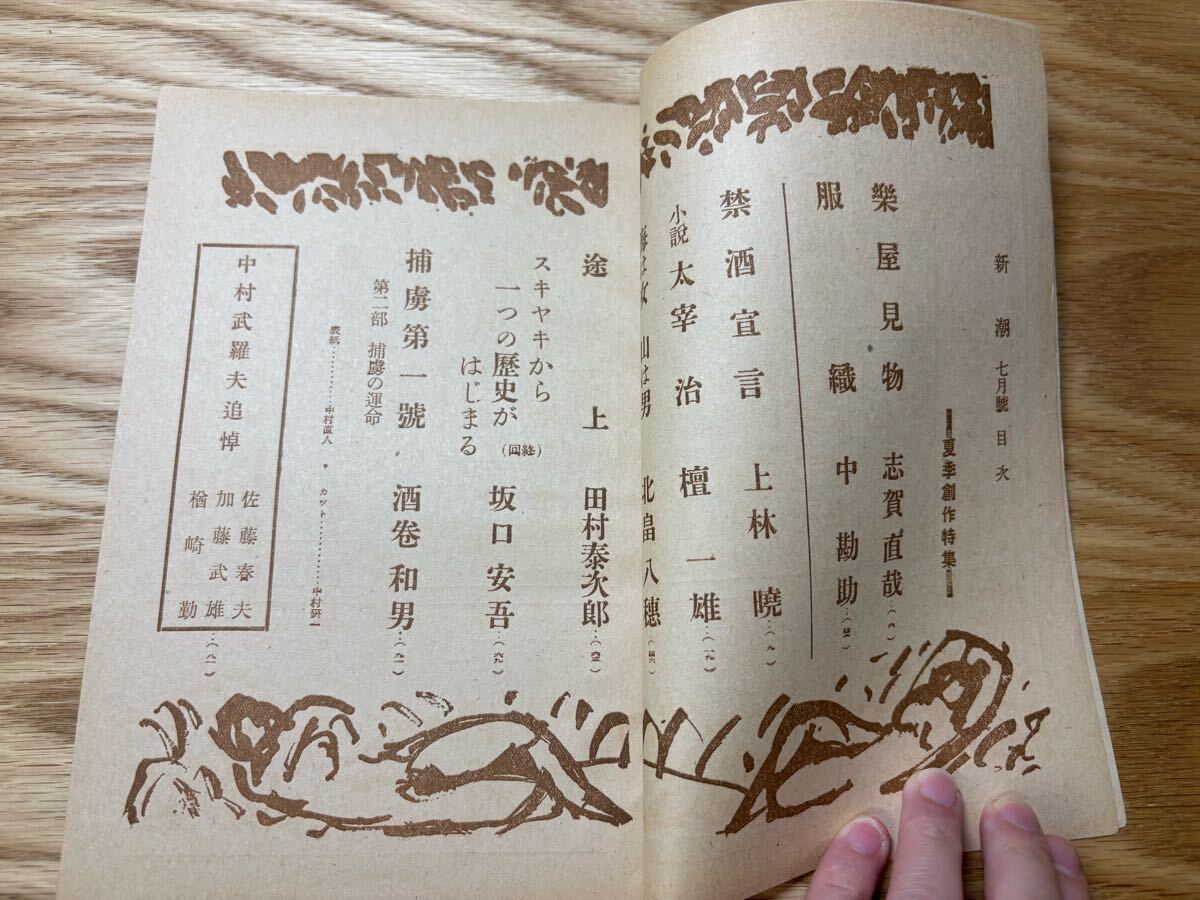 新潮 七月號 目次
夏季創作特集
樂屋見物 志賀直哉…(六)
服織 中勘助…(四三)
禁酒宣言 上林曉…(九)
小説太宰治 檀一雄…(一九)
山は男 北畠八穗…(四六)
途上 田村泰次郎…(六三)
スキヤキから
一つの歷史が
はじまる (終回) 坂口安吾…(六九)
捕虜第一號 酒卷和男…(九一)
第二部 捕虜の運命
表紙…………中村直人・カット…………中村研一
中村武羅夫追悼
佐藤春夫
加藤武雄
楢崎勤…(八一)